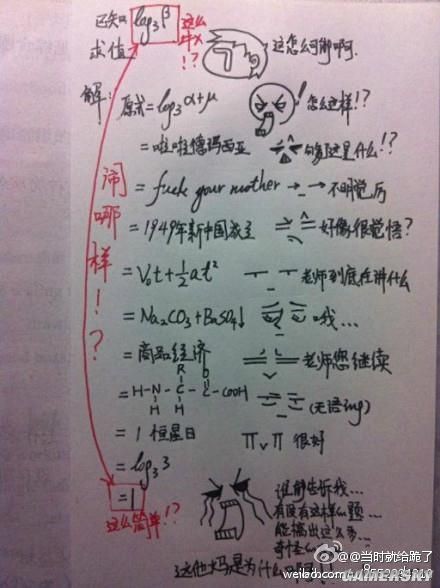 已知 log₃β 这么
求值 !? 这怎么可能啊.
解: 原式 = log₃ α+μ 怎么这样!?
= 啦啦德玛西亚 这是什么!?
= fuck your mother →_→ 不明觉厉
= 1949年新中国成立 好像很觉悟?
= V₀t + ½at² 老师到底在讲什么
= Na₂CO₃ + BaSO₄↓ 哦...
= 商品经济 老师您继续
R
= H-N-C-C-COOH (无语ing)
H H
= 1 恒星日 很好
= log₃3
= 1
这么简单!?
闹哪样!?
谁能告诉我...
有没有这样的题...
能搞出这么多...
这他大妈是为什么
@当时就给跪了
weibo.com/
GAMERSKY